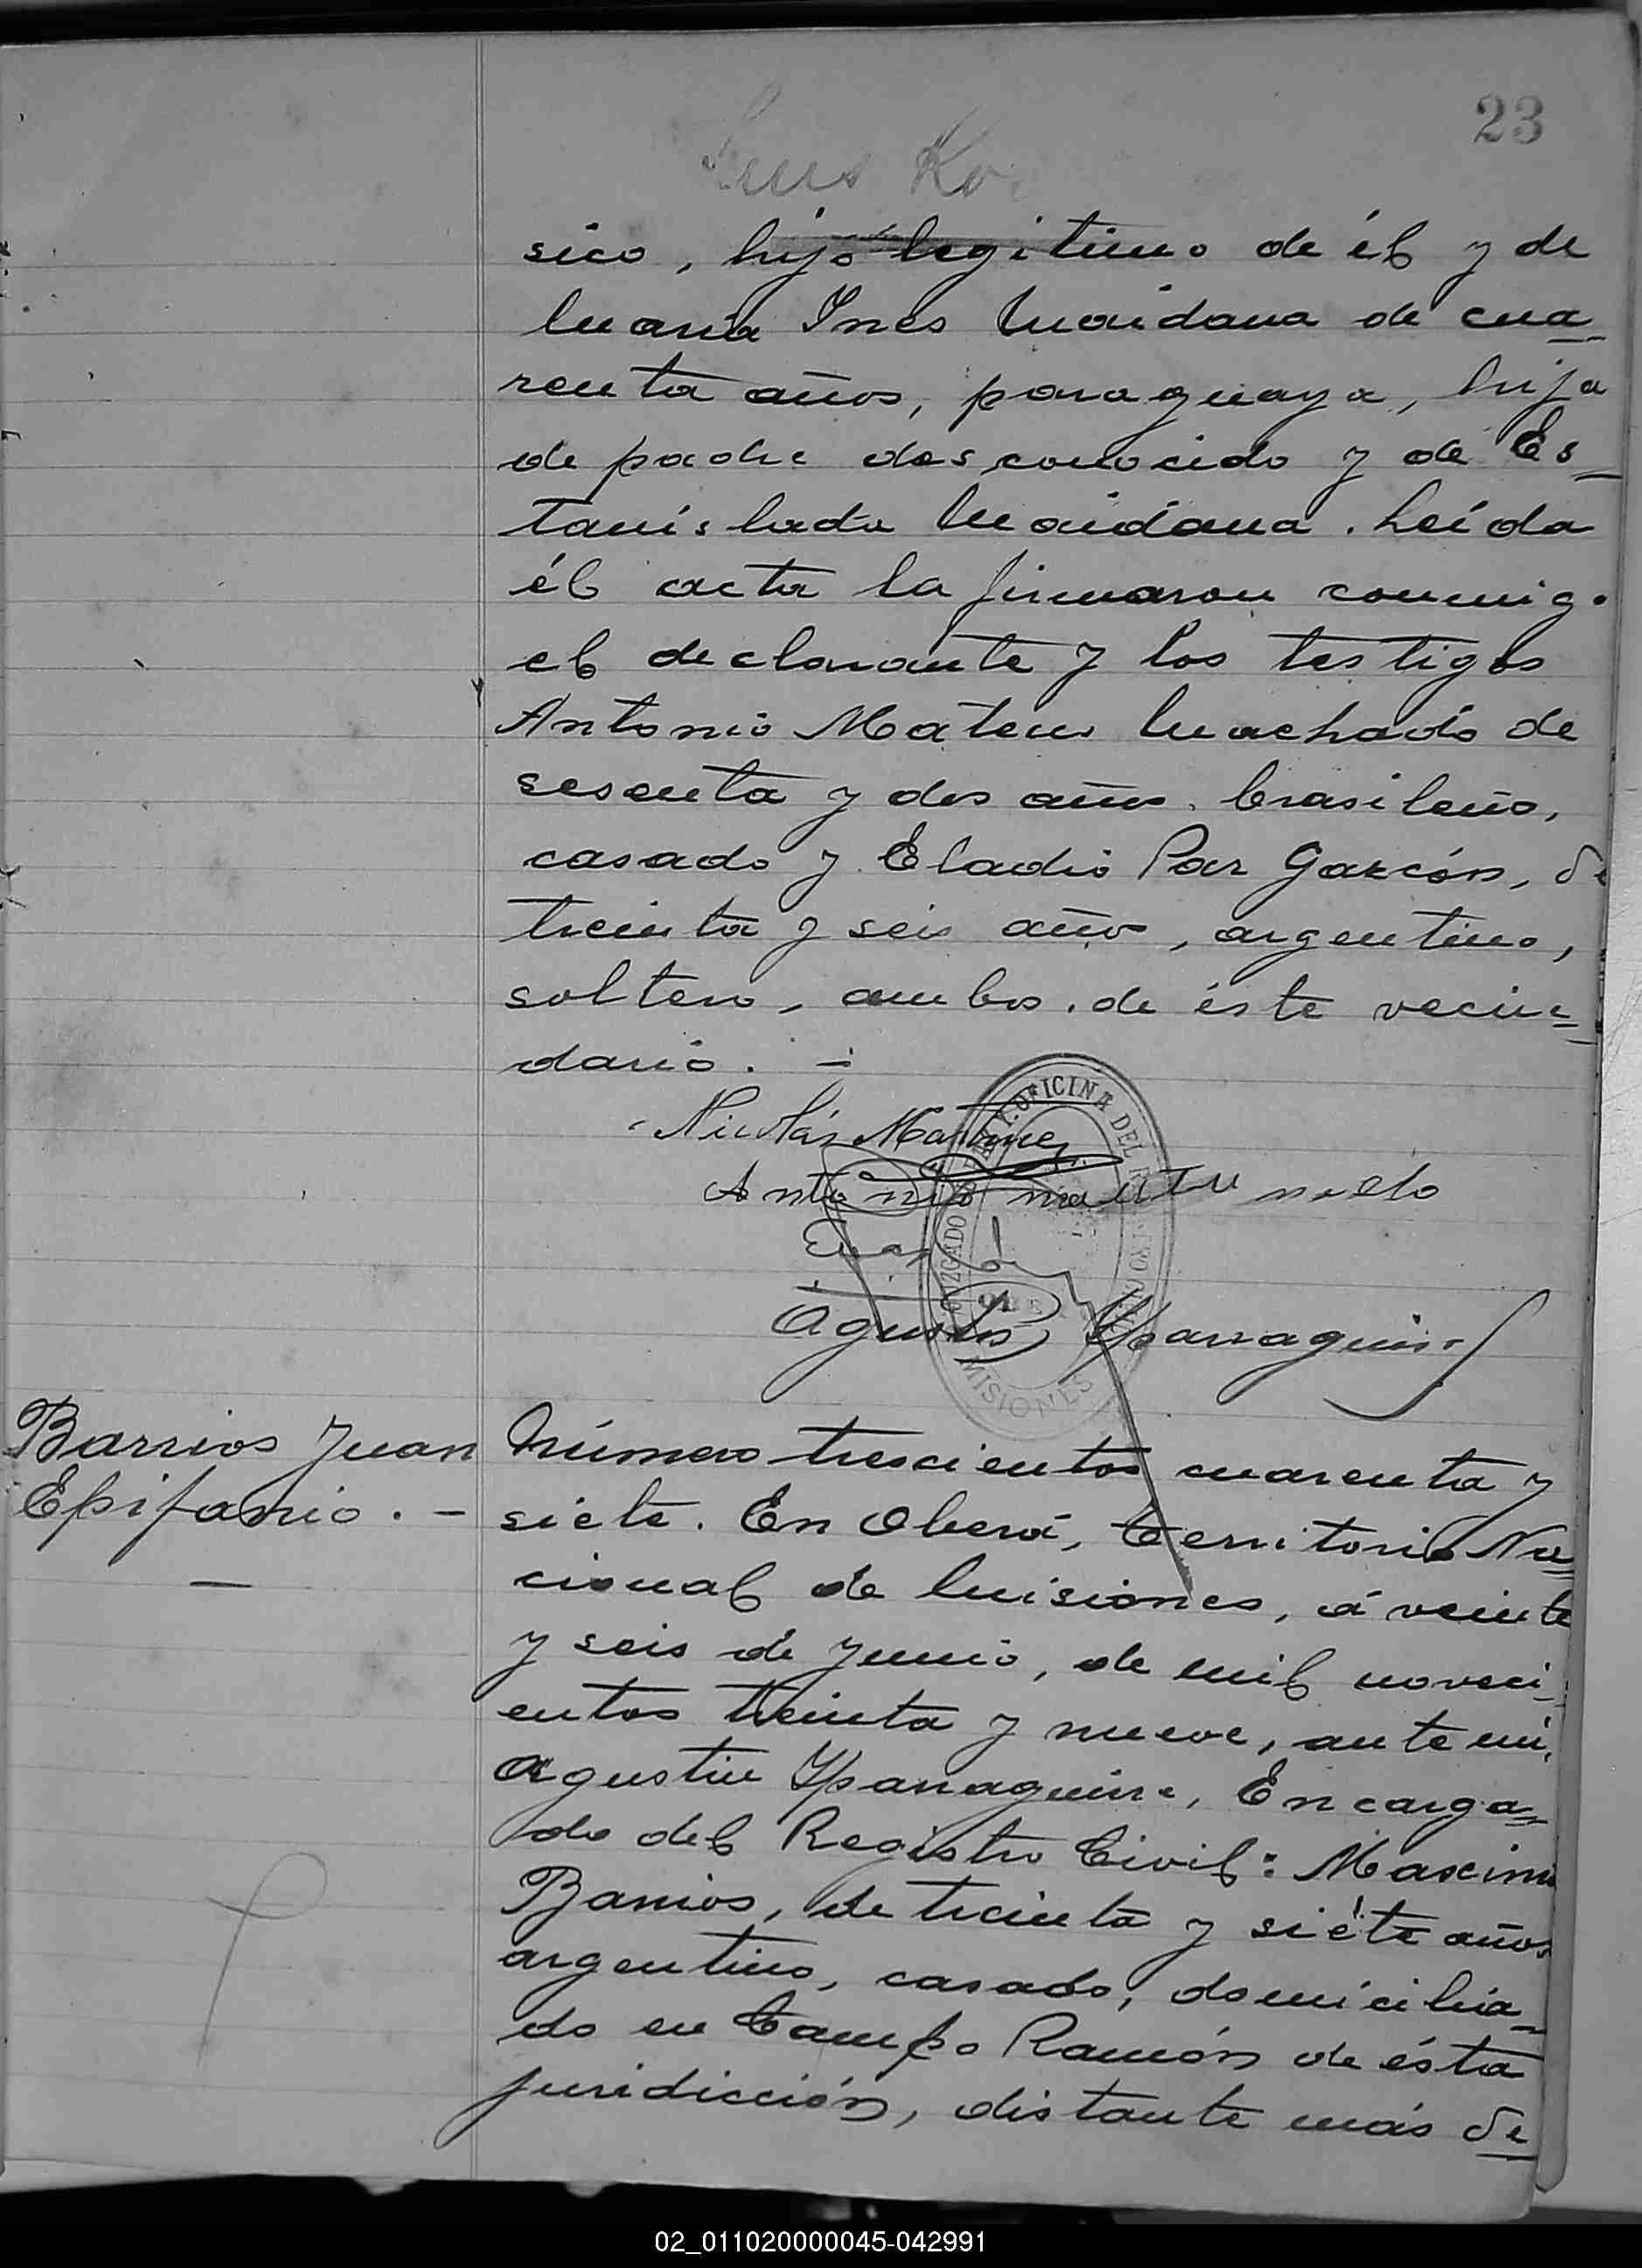 23
Luis
sico, hijo legitimo de él y de
Maria Ines Maidana de cua-
renta años, paraguaya, hija
de padre desconocido y de Es-
tanislada Maidana. Leída
él acta la firmaron conmigo
el declarante y los testigos
Antonio Mateus Machado de
sesenta y dos años. brasileño,
casado y Eladio Paz Garzón, de
treinta y seis años, argentino,
soltero, ambos. de éste vecin-
dario. -
Nicolás Martinez
Antonio
Agustin Yparraguirre
JUZGADO DE PAZ Y OFICINA DEL REGISTRO CIVIL
MISIONES
Barrios Juan
Epifanio. -
Número trescientos cuarenta y
siete. En Oberá, Territorio Na-
cional de Misiones, á veinte
y seis de Junio, de mil noveci-
entos treinta y nueve, ante mi,
Agustin Yparraguirre, Encarga-
do del Registro Civil: Maximo
Barrios, de treinta y siéte años
argentino, casado, domicilia-
do en Campo Ramón de ésta
juridicción, distante más de
02_011020000045-042991